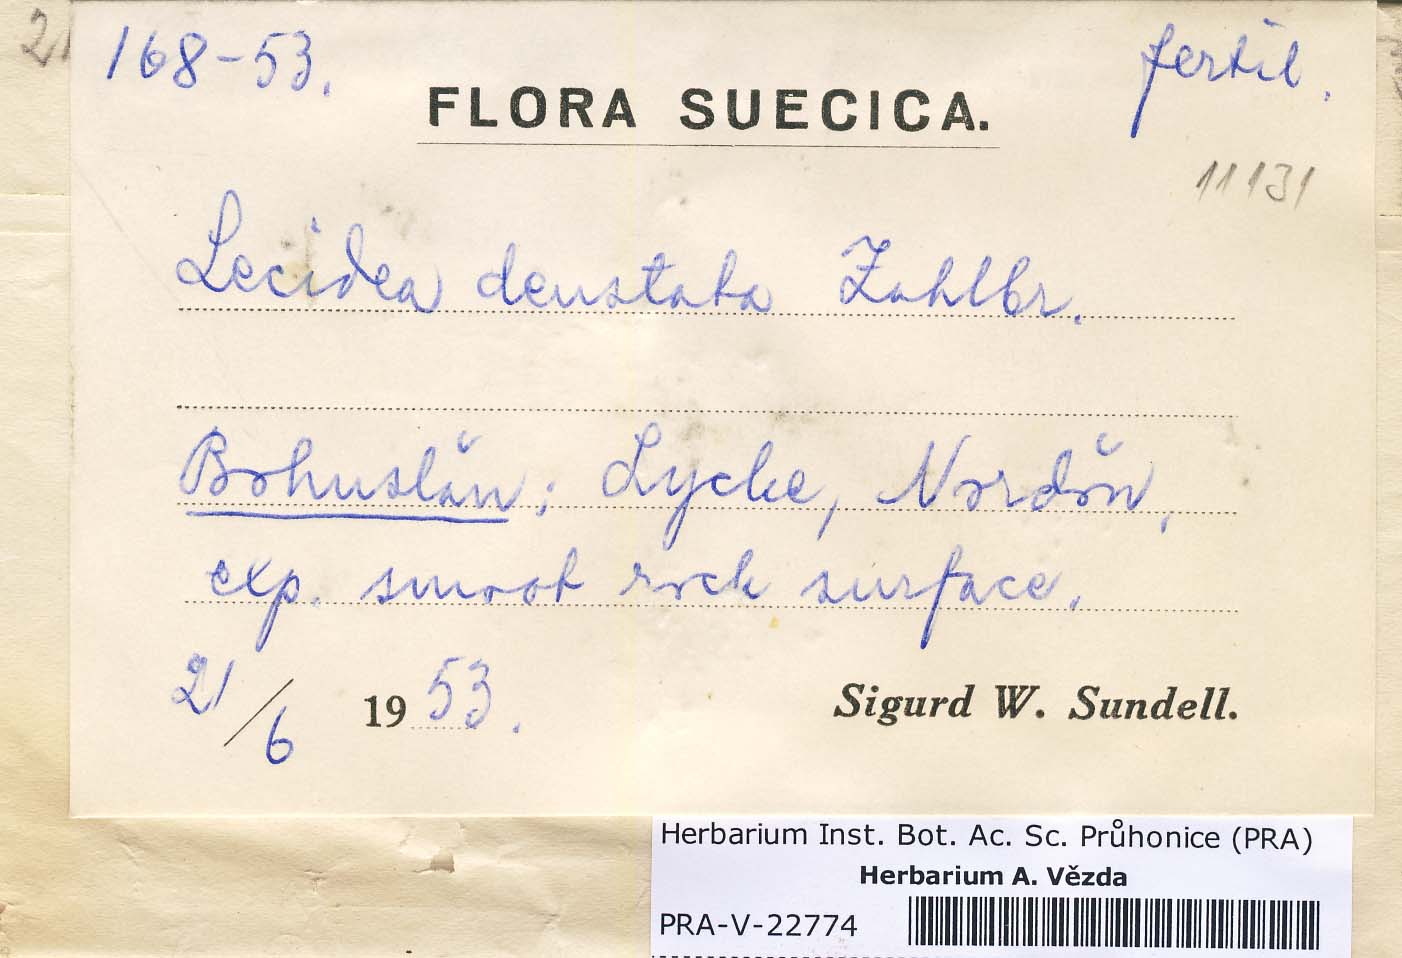 168-53. fertil.
FLORA SUECICA.
11131
Lecidea deustata Zahlbr.
Bohuslän; Lycke, Nordön,
exp. smoot rock surface.
21/6 1953.
Sigurd W. Sundell.
Herbarium Inst. Bot. Ac. Sc. Průhonice (PRA)
Herbarium A. Vězda
PRA-V-22774